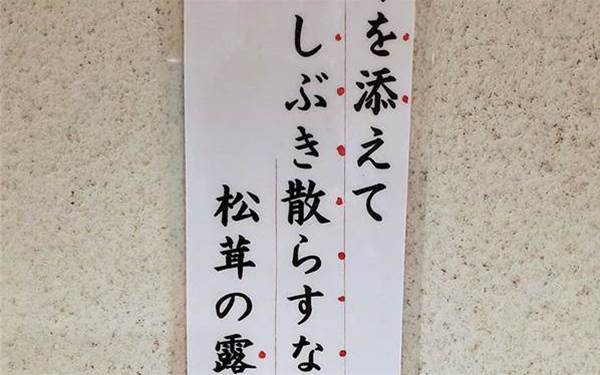 を添えて
しぶき散らすな
松茸の露